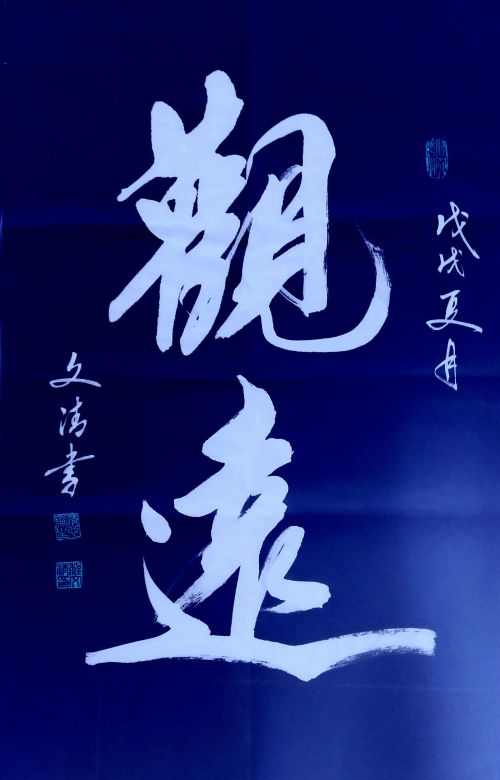 戊戌夏月
觀遠
文清书